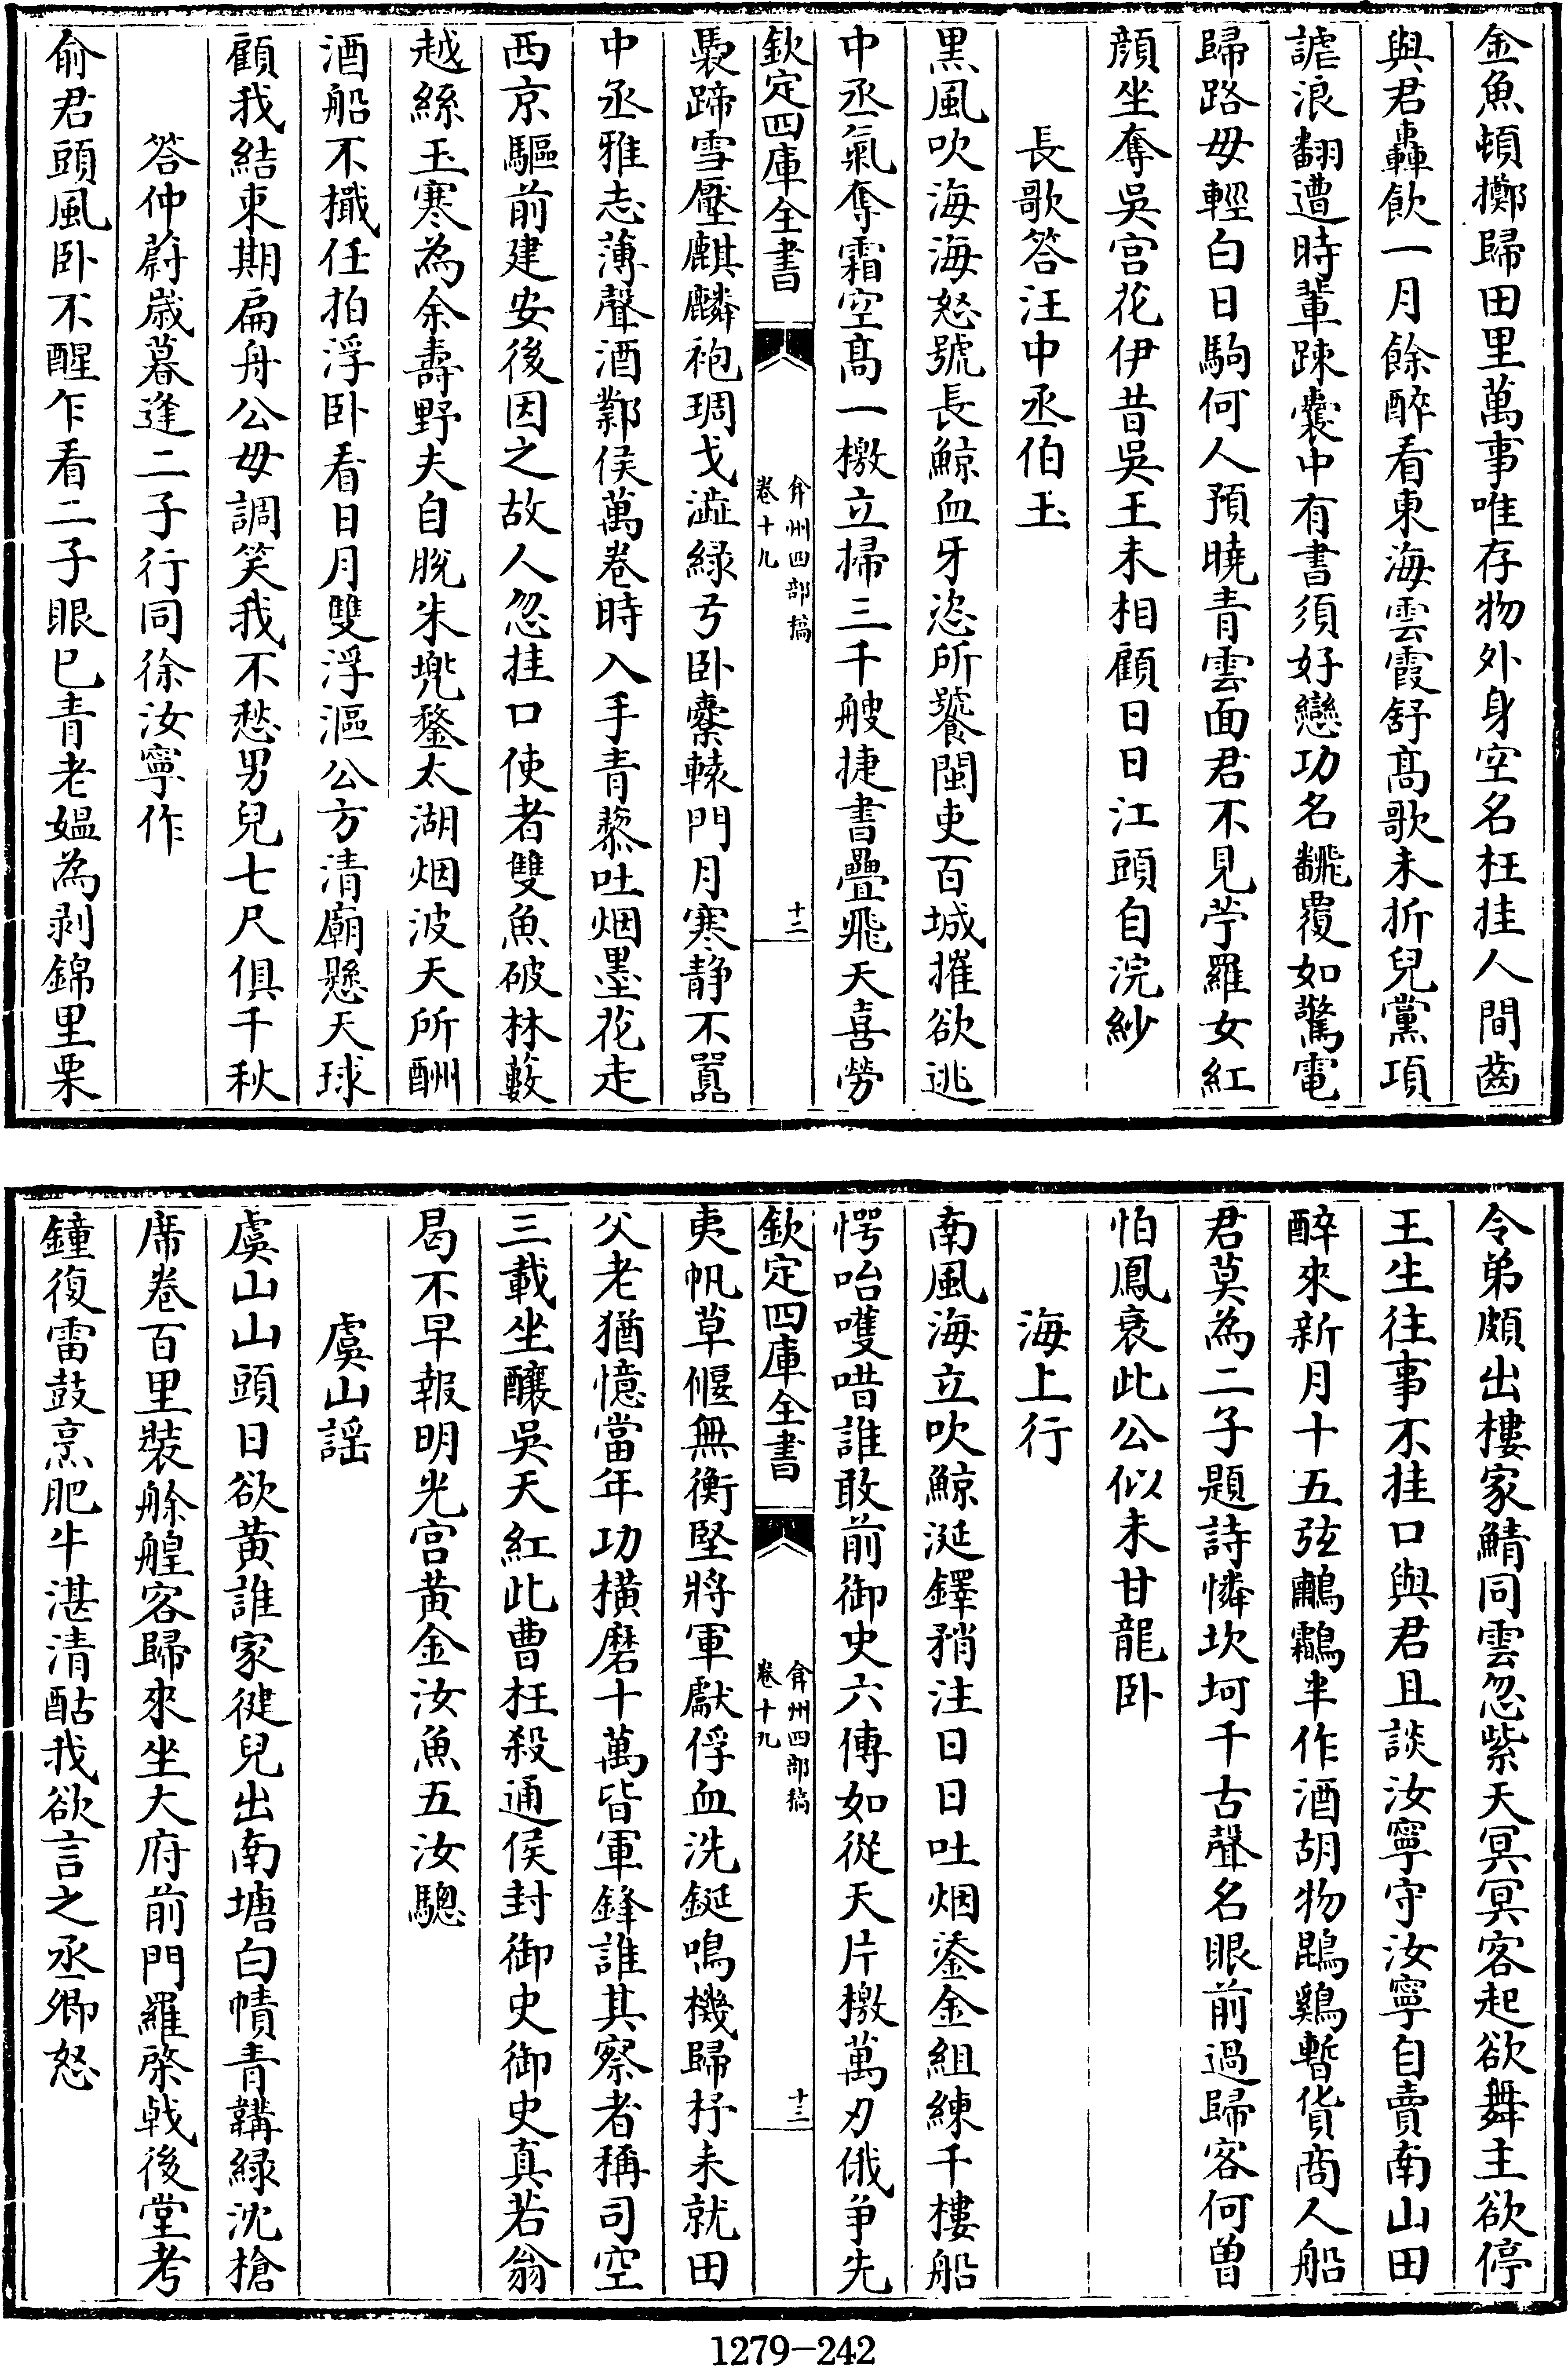 金魚頓擲歸田里萬事唯存物外身空名枉挂人間齒
與君轟飲一月餘醉看東海雲霞舒髙歌未折兒黨項
謔浪翻遭時輩踈囊中有書須好戀功名飜覆如驚電
歸路毋輕白日駒何人預曉青雲面君不見苧羅女紅
顔坐奪吳宫花伊昔吳王未相顧日日江頭自浣紗
長歌答汪中丞伯玉
黒風吹海海怒號長鯨血牙恣所饕閩吏百城摧欲逃
中丞氣奪霜空髙一檄立掃三千艘捷書疊飛天喜勞
欽定四庫全書
弇州四部稿
卷十九
十二
褭蹄雪壓麒麟袍琱戈澁緑弓卧櫜轅門月寒静不囂
中丞雅志薄聲酒鄴侯萬卷時入手青藜吐烟墨花走
西京驅前建安後因之故人忽挂口使者雙魚破林藪
越絲玉寒為余壽野夫自脫朱兠鍪太湖烟波天所酬
酒船不檥任拍浮卧看日月雙浮漚公方清廟懸天球
顧我結束期扁舟公毋調笑我不愁男兒七尺俱千秋
答仲蔚嵗暮逢二子行同徐汝寧作
俞君頭風卧不醒乍看二子眼已青老媼為剥錦里栗
令弟頗出樓家鯖同雲忽紫天冥冥客起欲舞主欲停
王生往事不挂口與君且談汝寧守汝寧自賣南山田
醉來新月十五弦鷫鸘半作酒胡物鵾鷄暫貨商人船
君莫為二子題詩憐坎坷千古聲名眼前過歸客何曽
怕鳳衰此公似未甘龍卧
海上行
南風海立吹鯨涎鐸矟注日日吐烟鋈金組練千樓船
愕眙嚄唶誰敢前御史六傳如從天片檄萬刃俄争先
欽定四庫全書
弇州四部稿
卷十九
十三
夷帆草偃無衡堅將軍獻俘血洗鋋鳴機歸杼耒就田
父老猶憶當年功横磨十萬皆軍鋒誰其察者稱司空
三載坐釀吳天紅此曹枉殺通侯封御史御史真若翁
曷不早報明光宫黄金汝魚五汝驄
虞山謡
虞山山頭日欲黄誰家健兒出南塘白幘青韝緑沈槍
席卷百里裝艅艎客歸來坐大府前門羅棨㦸後堂考
鐘復雷鼓烹肥牛湛清酤我欲言之丞卿怒
1279-242